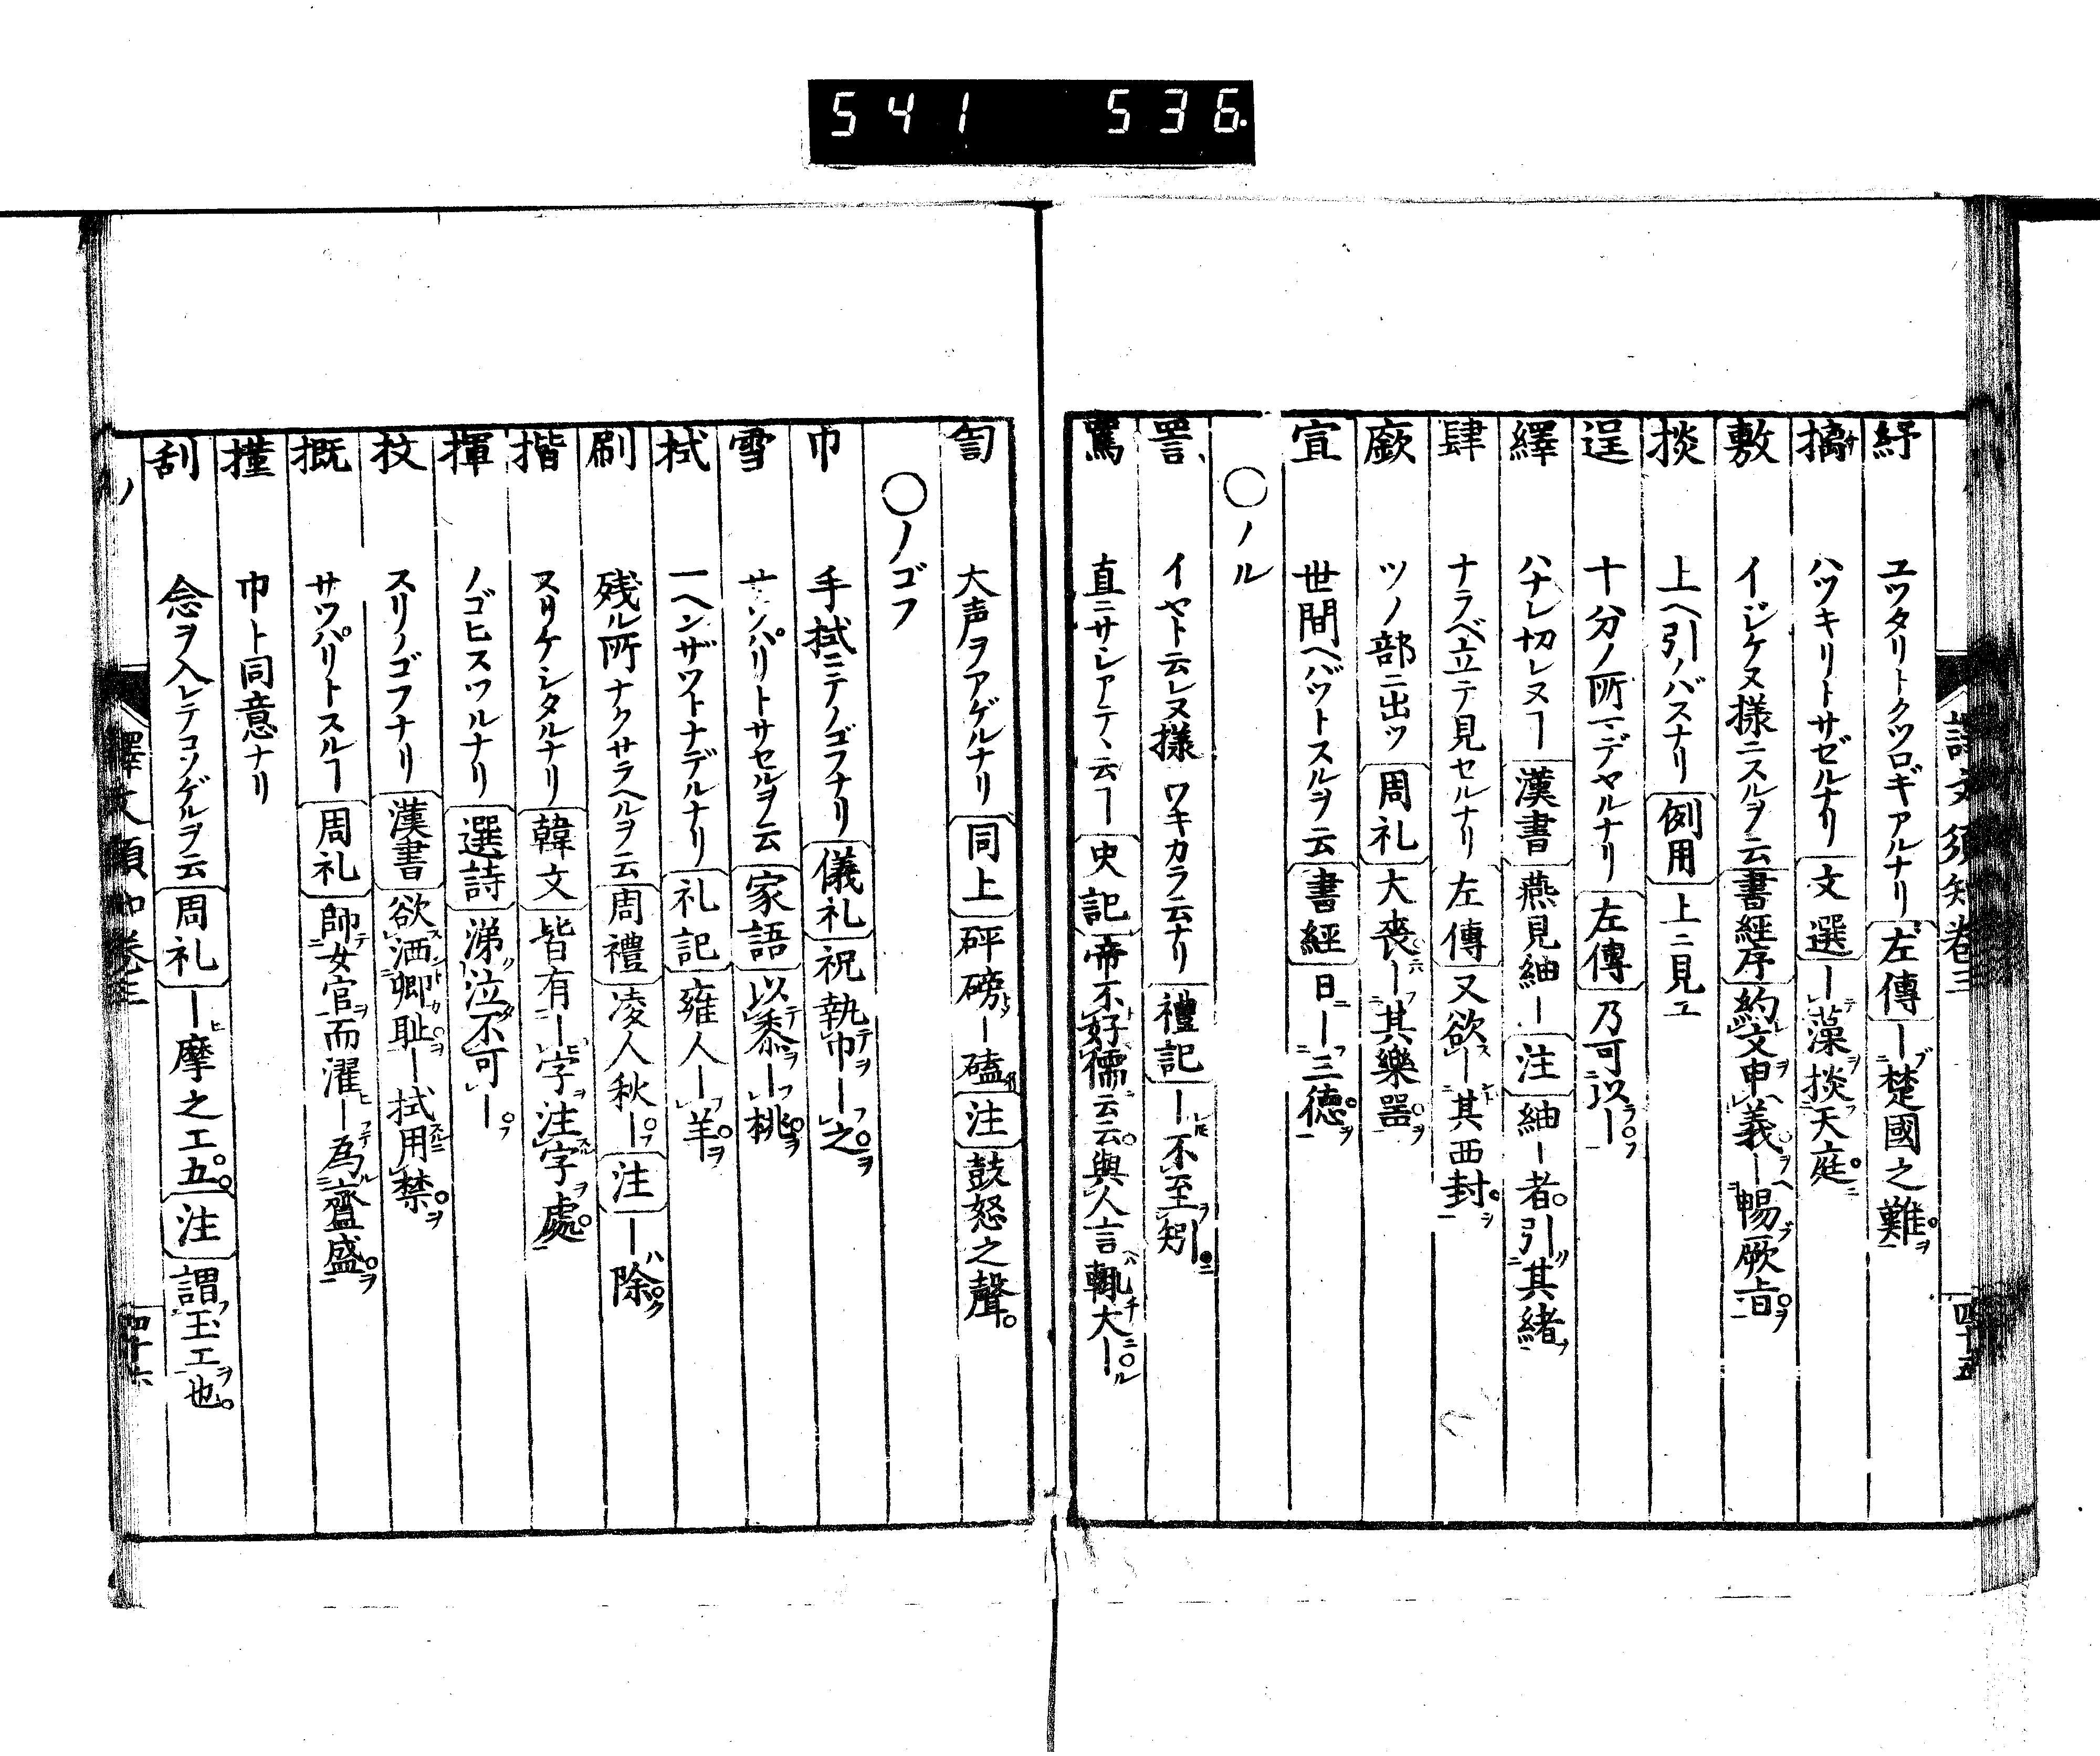 541 536
譯文須知卷三
四十五
紓 ユツタリトクツロギアルナリ 左傳 ー楚國之難
摛 ハツキリトサゼルナリ 文選 ー藻掞天庭
敷 イジケヌ様ニスルヲ云 書經序 約文申義ー暢厥旨
掞 上ヘ引ノバスナリ 例用 上ニ見エ
逞 十分ノ所マデヤルナリ 左傳 乃可以ー
繹 ハナレ切レヌヿ 漢書 燕見紬ー 注 紬ー者引其緒
肆 ナラベ立テ見セルナリ 左傳 又欲ー其西封
廞 ツノ部ニ出ツ 周礼 大喪ー其樂噐
宣 世間ヘバツトスルヲ云 書經 日ー三德
〇ノル
詈 イヤト云レヌ様ワキカラ云ナリ 禮記 ー不至矧
罵 直ニサシアテヽ云ヿ 史記 帝不好儒云云與人言輒大ー
訇 大声ヲアゲルナリ 同上 砰磅ー磕 注 鼓怒之聲
〇ノゴフ
巾 手拭ニテノゴフナリ 儀礼 祝執巾ー之
雪 サツパリトサセルヲ云 家語 以黍ー桃
拭 一ヘンザツトナデルナリ 礼記 雍人ー羊
刷 残ル所ナクサラヘルヲ云 周禮 凌人秋ー 注 ー除
揩 スリケシタルナリ 韓文 皆有ー字注字處
揮 ノゴヒスツルナリ 選詩 涕泣不可ー
抆 スリノゴフナリ 漢書 欲洒卿耻ー拭用禁
摡 サツパリトスルヿ 周礼 帥女官而濯ー為齍盛
㨫 巾ト同意ナリ
刮 念ヲ入レテコソゲルヲ云 周礼 ー摩之工五 注 謂玉工也
ノ
譯文須知卷三
四十六